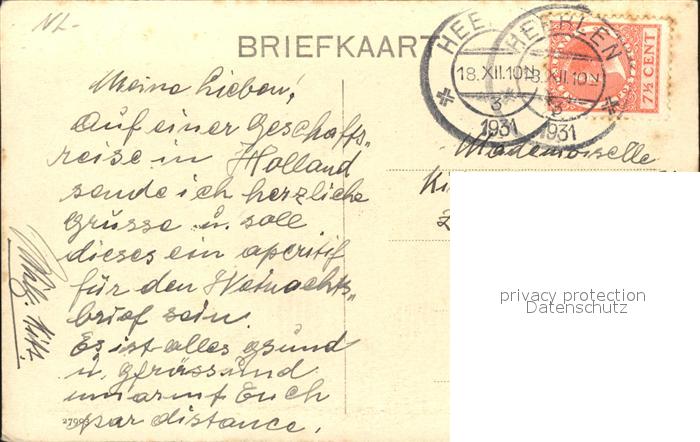 NL-
BRIEFKAART
HEERLEN
18.XII.10N
3
1931
HEERLEN
18.XII.10N
3
1931
7½ CENT
Meine Lieben!
Auf einer Geschäfts„
reise in Holland
sende ich herzliche
Grüsse u. soll
dieses ein aperitif
für den Weinachts„
brief sein.
Es ist alles gsund
u. gfrässund
umarmt Euch
par distance.
Mademoiselle
27993
privacy protection
Datenschutz